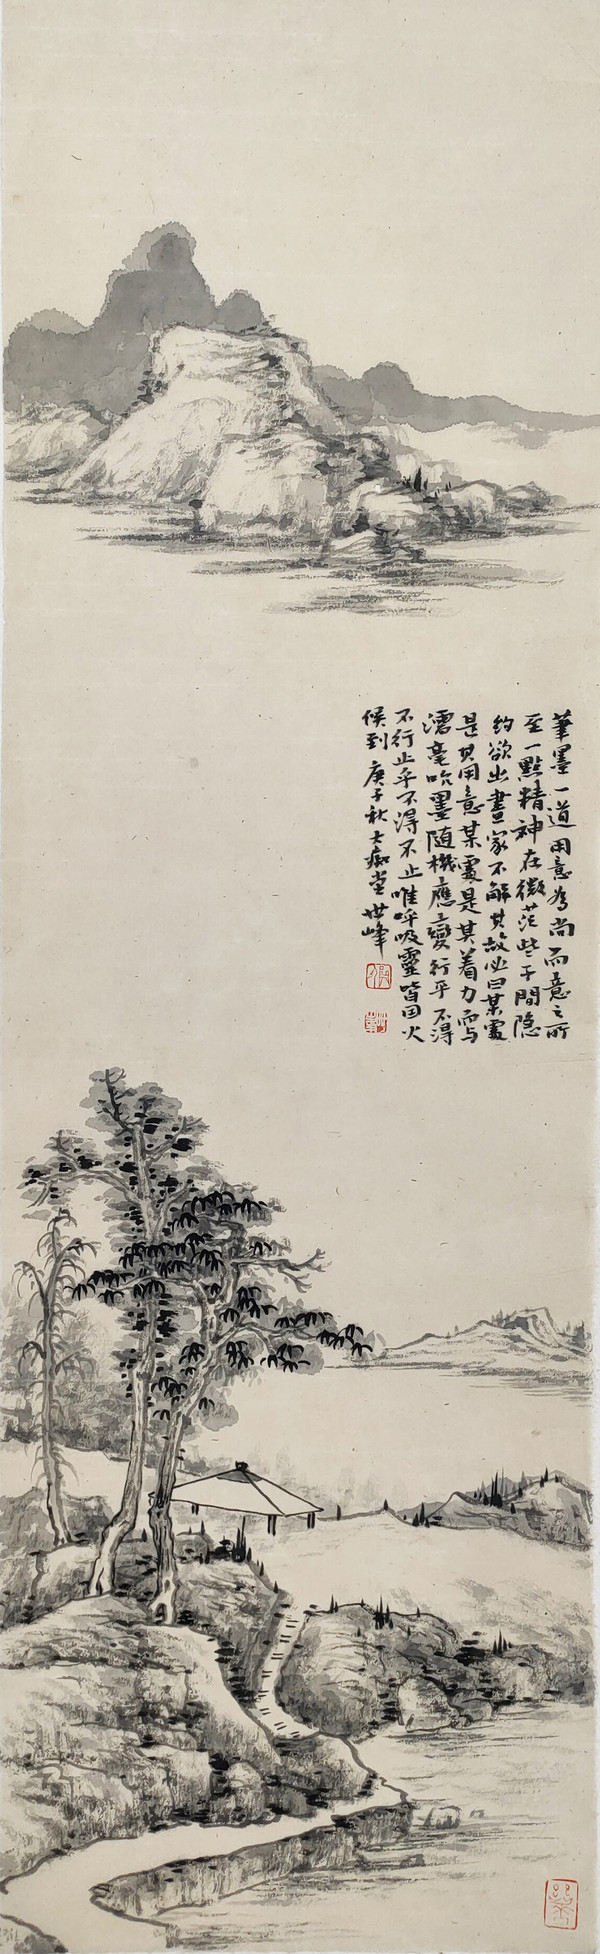 筆墨一道用意為尚而意之所
至一點精神在微茫些子間隱
約欲出畫家不解其故必曰某處
是其用意某處是其着力而與
濡毫吮墨隨機應變行乎不得
不行止乎不得不止唯呼吸靈皆回火
候到 庚子秋大痴堂世峰